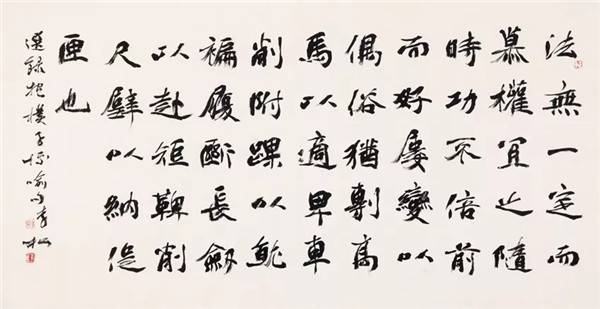 法無一定而
慕權宜之隨
時功不倍前
而好屢變以
偶俗猶剸高
馬以適卑車
削附踝以就
褊履斷長劍
以赴短鞞削
尺璧以納促
匣也
選録抱樸子博喻句